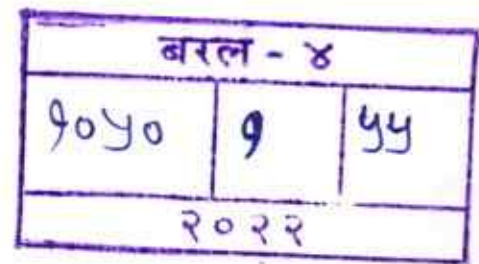 बरल - ४
१०५० १ ५५
२०२२